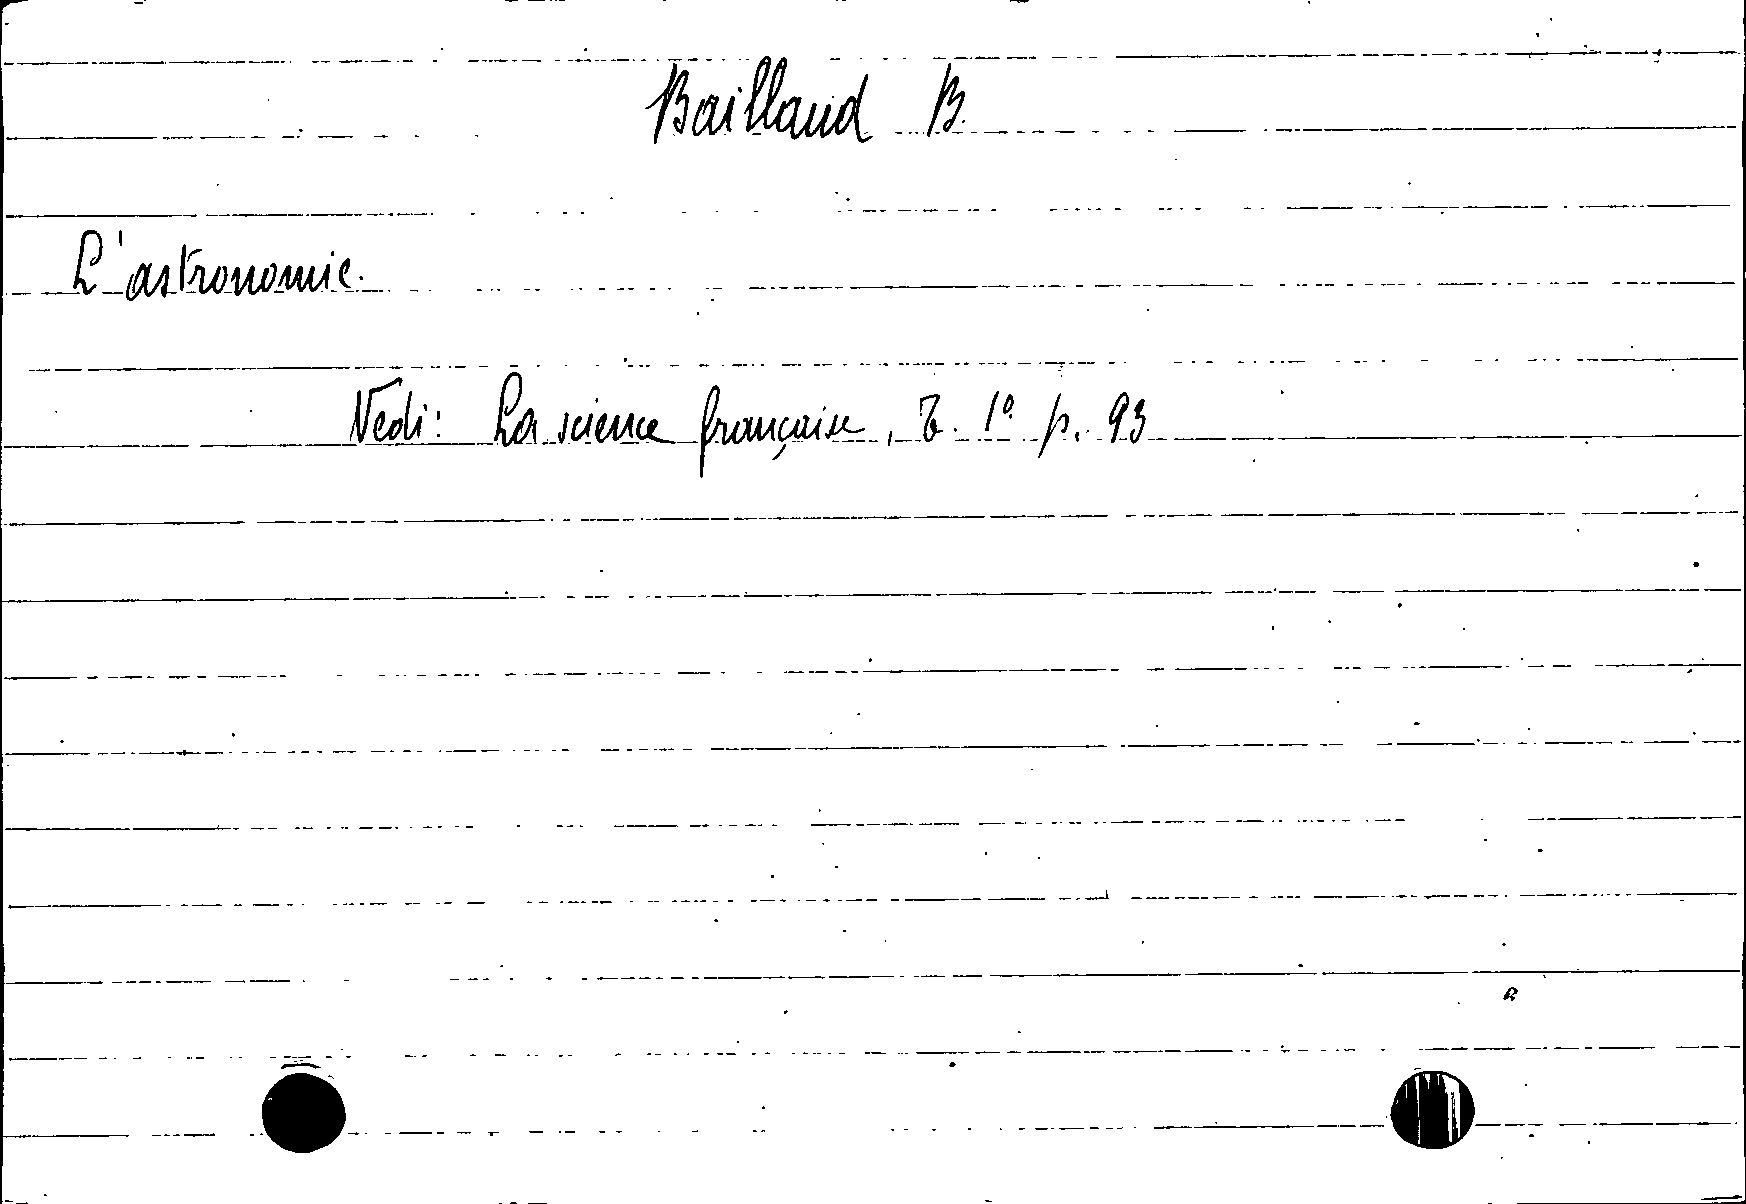 Baillaud B.
L'astronomie.
Vedi: La science française, T. 1º p. 93